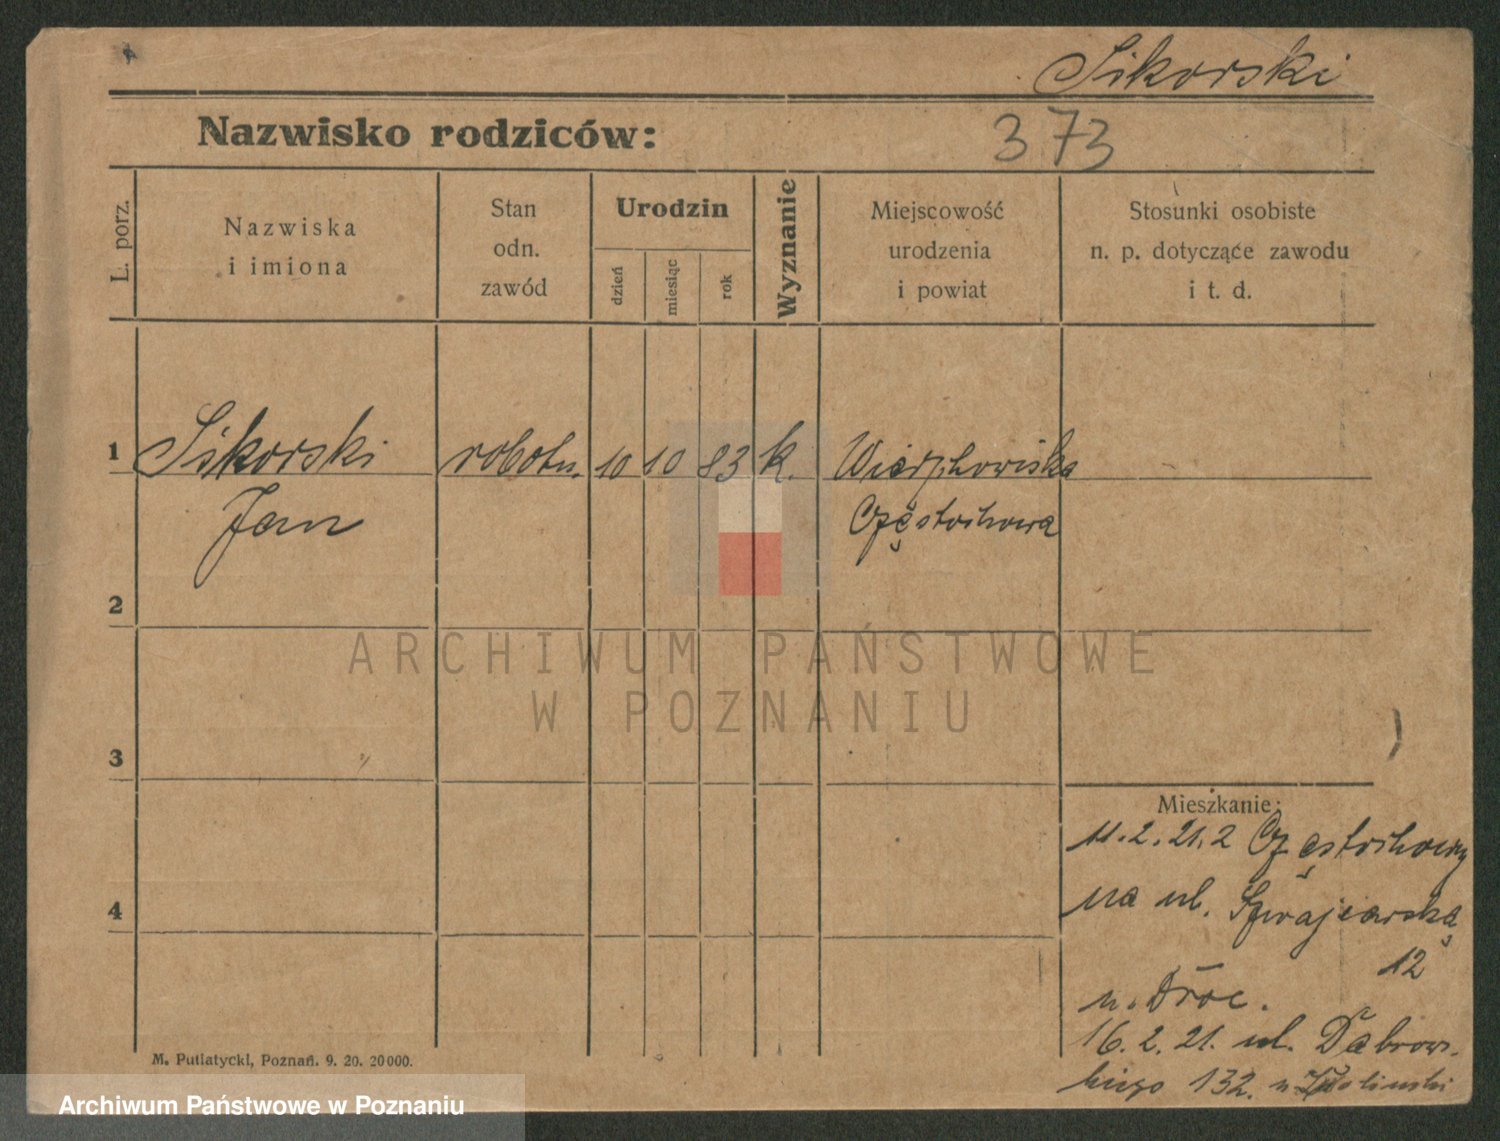 Sikorski
Nazwisko rodziców:
373
L. porz.
Nazwiska
i imiona
Stan
odn.
zawód
Urodzin
dzień
miesiąc
rok
Wyznanie
Miejscowość
urodzenia
i powiat
Stosunki osobiste
n. p. dotyczące zawodu
i t. d.
1
Sikorski robotn. 10 10 83 k.
Jan
Częstochowa
2
ARCHIWUM PAŃSTWOWE
W POZNANIU
3
Mieszkanie:
11.2.21. z Częstochowy
4
na ul. Szwajcarską
12
u.
16.2.21. ul. Dąbrow-
skiego 132. u
M. Putiatycki, Poznań. 9. 20. 20000.
Archiwum Państwowe w Poznaniu